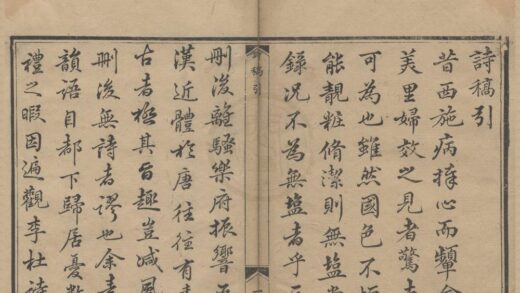 詩稿引
昔西施病捧心而顰
美里婦效之見者驚
可為也雖然國色不
能靚粧脩潔則無塩
錄况不為無塩者乎
稿引
刪後離騷樂府振響
漢近體於唐往往有
古者極其旨趣豈减風
刪後無詩者謬也余
韻語自都下歸居憂
禮之暇因遍觀李杜詩